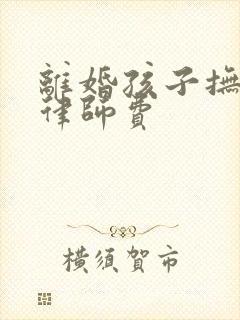 離婚孩子撫
律師費
橫須賀市